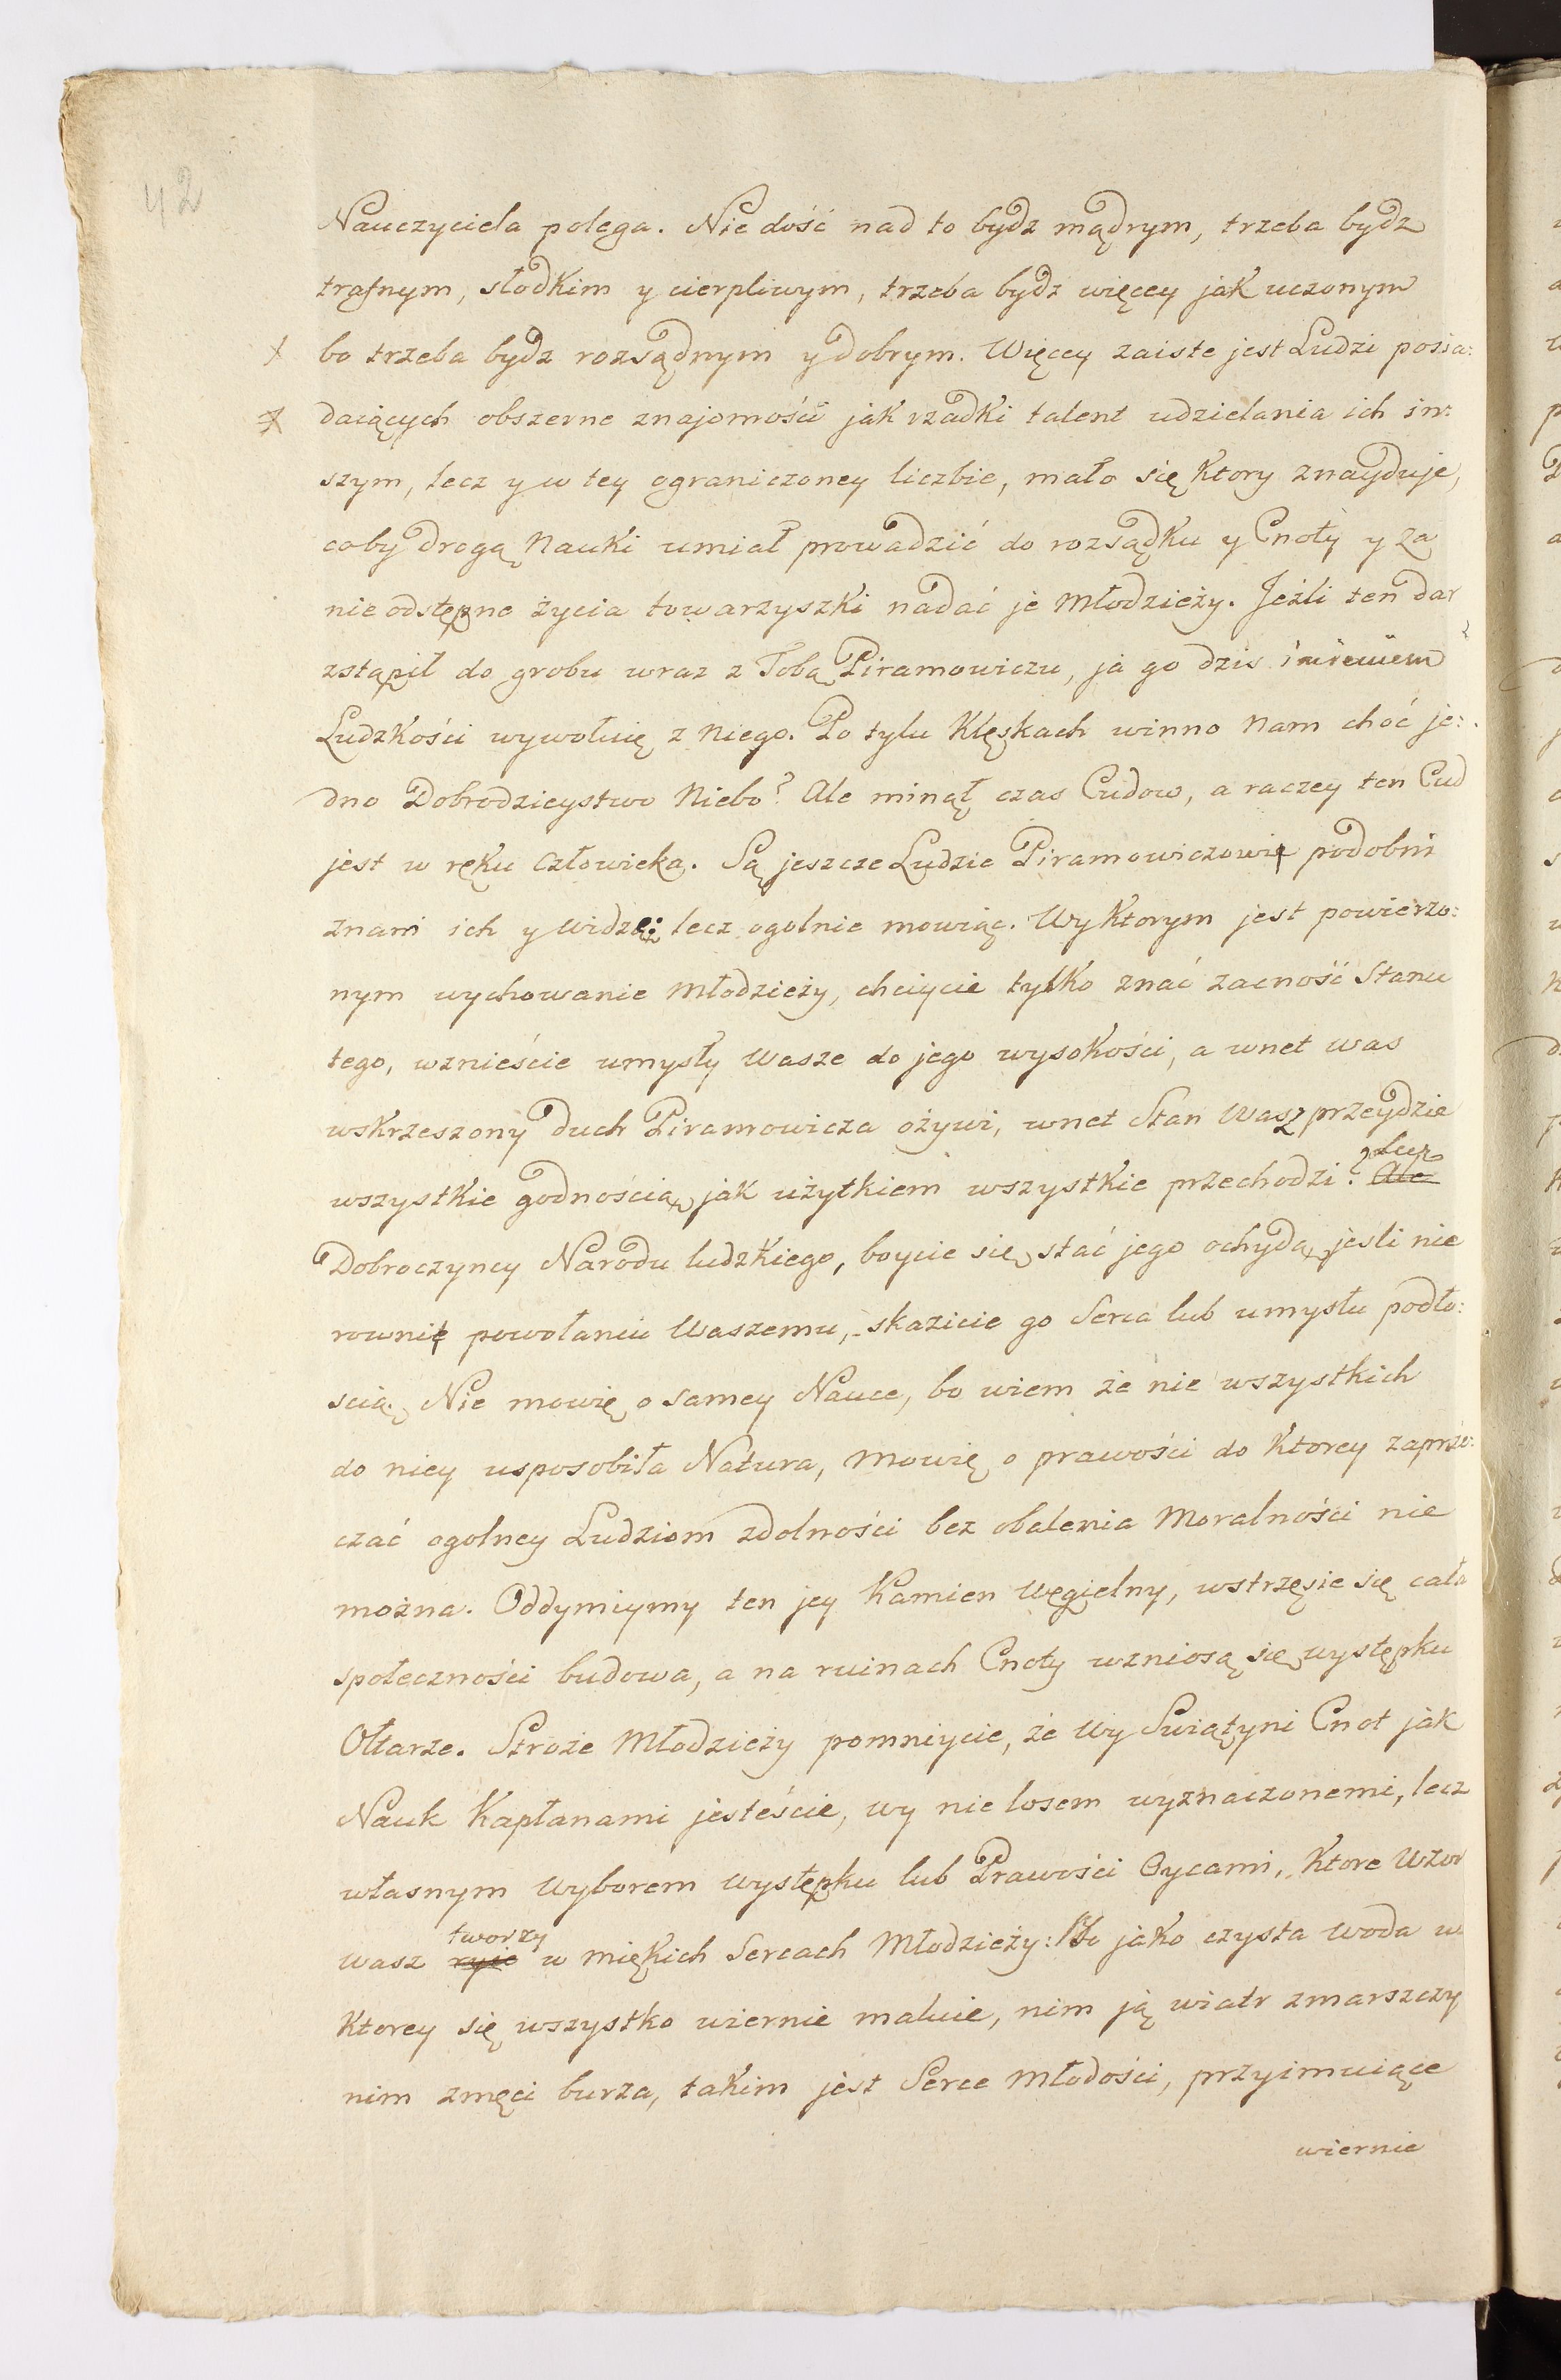 42
Nauczyciela polega. Nie dość nad to bydz mądrym, trzeba bydz
trafnym, słodkim y cierpliwym, trzeba bydz więcey jak uczonym
bo trzeba bydz rozsądnym y dobrym. Więcey zaiste jest Ludzi posia:
daiących obszerne znajomości jak rzadki talent udzielania ich in:
szym, lecz y w tey ograniczoney liczbie, mało się ktory znayduje,
coby drogą Nauki umiał prowadzić do rozsądku y Cnoty y za
nie odstępne życia towarzyszki nadać je Młodzieży. Jeżli ten dar
zstąpił do grobu wraz z Tobą Piramowiczu, ja go dzis imieniem
Ludzkości wywołuię z niego. Po tylu Klęskach winno Nam choć je:
dno Dobrodzieystwo Niebo? Ale minął czas Cudow, a raczey ten Cud
jest w ręku człowieka. Są jeszcze Ludzie Piramowiczowi podobni
znam ich y widzę; lecz ogolnie mowiąc. Wy ktorym jest powierzo:
nym wychowanie Młodzieży, chciycie tylko znać zacność Stanu
tego, wznieście umysły Wasze do jego wysokości, a wnet was
wskrzeszony duch Piramowicza ożywi, wnet Stan Wasz przeydzie
wszystkie godnością, jak użytkiem wszystkie przechodzi? Lecz Ale
Dobroczyncy Narodu ludzkiego, boycie się stać jego ochydą, jesli nie
rowni powołaniu Waszemu, skazicie go Serca lub umysłu podło:
scią. Nie mowię o samey Nauce, bo wiem że nie wszystkich
do niey usposobiła Natura, mowię o prawości do ktorey zaprze:
czać ogolney Ludziom zdolności bez obalenia Moralności nie
można. Oddymiymy ten jey Kamien Węgielny, wstrzęsie się cała
społeczności budowa, a na ruinach Cnoty wzniosą się występku
Ołtarze. Stroże Młodzieży pomniycie, że Wy Swiątyni Cnot jak
Nauk Kapłanami jesteście, wy nie losem wyznaczonemi, lecz
własnym Wyborem występku lub Prawości Oycami. Ktore Wzor
tworzy
wasz ryie w miękich Sercach Młodzieży: Bo jako czysta woda w
Ktorey się wszystko wiernie maluie, nim ją wiatr zmarszczy
nim zmęci burza, takim jest Serce Młodości, przyimuiące
wiernie